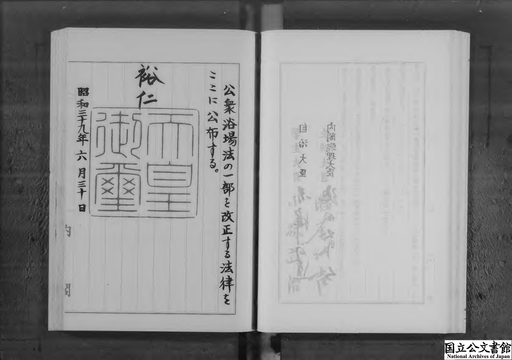 公衆浴場法の一部を改正する法律を
ここに公布する。
裕仁
天皇
御璽
昭和三十九年六月三十日
内閣
内閣総理大臣
自治大臣
国立公文書館
National Archives of Japan